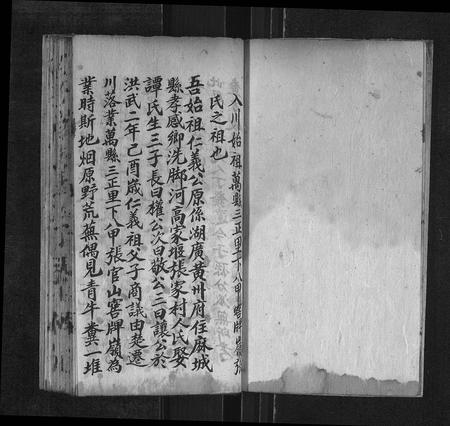 入川始祖萬縣三正里下八甲
氏之祖也
吾始祖仁義公原係湖廣黃州府住麻城
縣孝感鄉洗脚河高家堰張家村人氏娶
譚氏生三子長曰權公次曰敬公三曰讓公於
洪武二年己酉嵗仁義祖父子商議由楚還
川落業萬縣三正里下八甲張官山窖牌嶺為
業時斯地烟原野荒蕪偶見青牛糞一堆